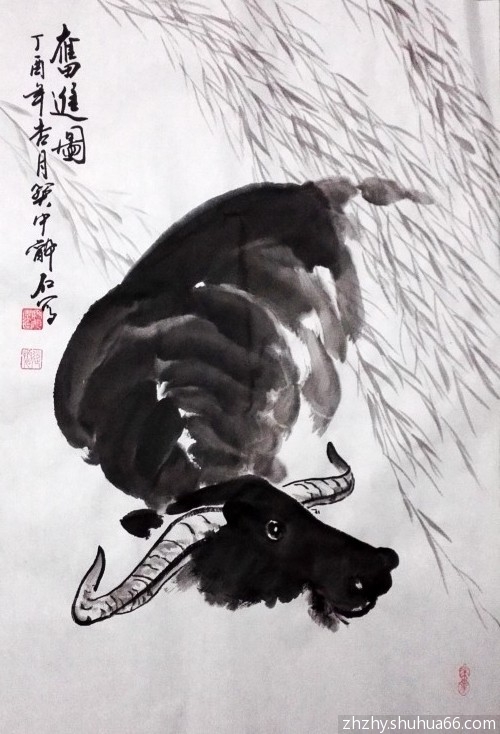 奮進圖
丁酉年杏月関中石写
zhzhy.shuhua66.com